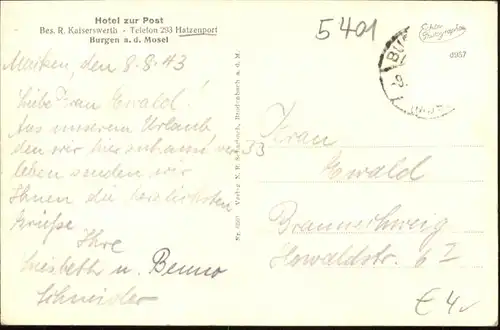 Hotel zur Post
Bes. R. Kaiserswerth - Telefon 293 Hatzenport
Burgen a. d. Mosel
5401
Echte Photographie
0957
Macken, den 8.8.43
Liebe Frau Ewald!
Aus unserem Urlaub
den wir hier
leben senden wir
Ihnen die herzlichsten
Grüße
Ihre
Liesbeth u. Benno
Schneider
33
Frau
Ewald
Braunschweig
Howaldtstr. 6 I
€ 4,-